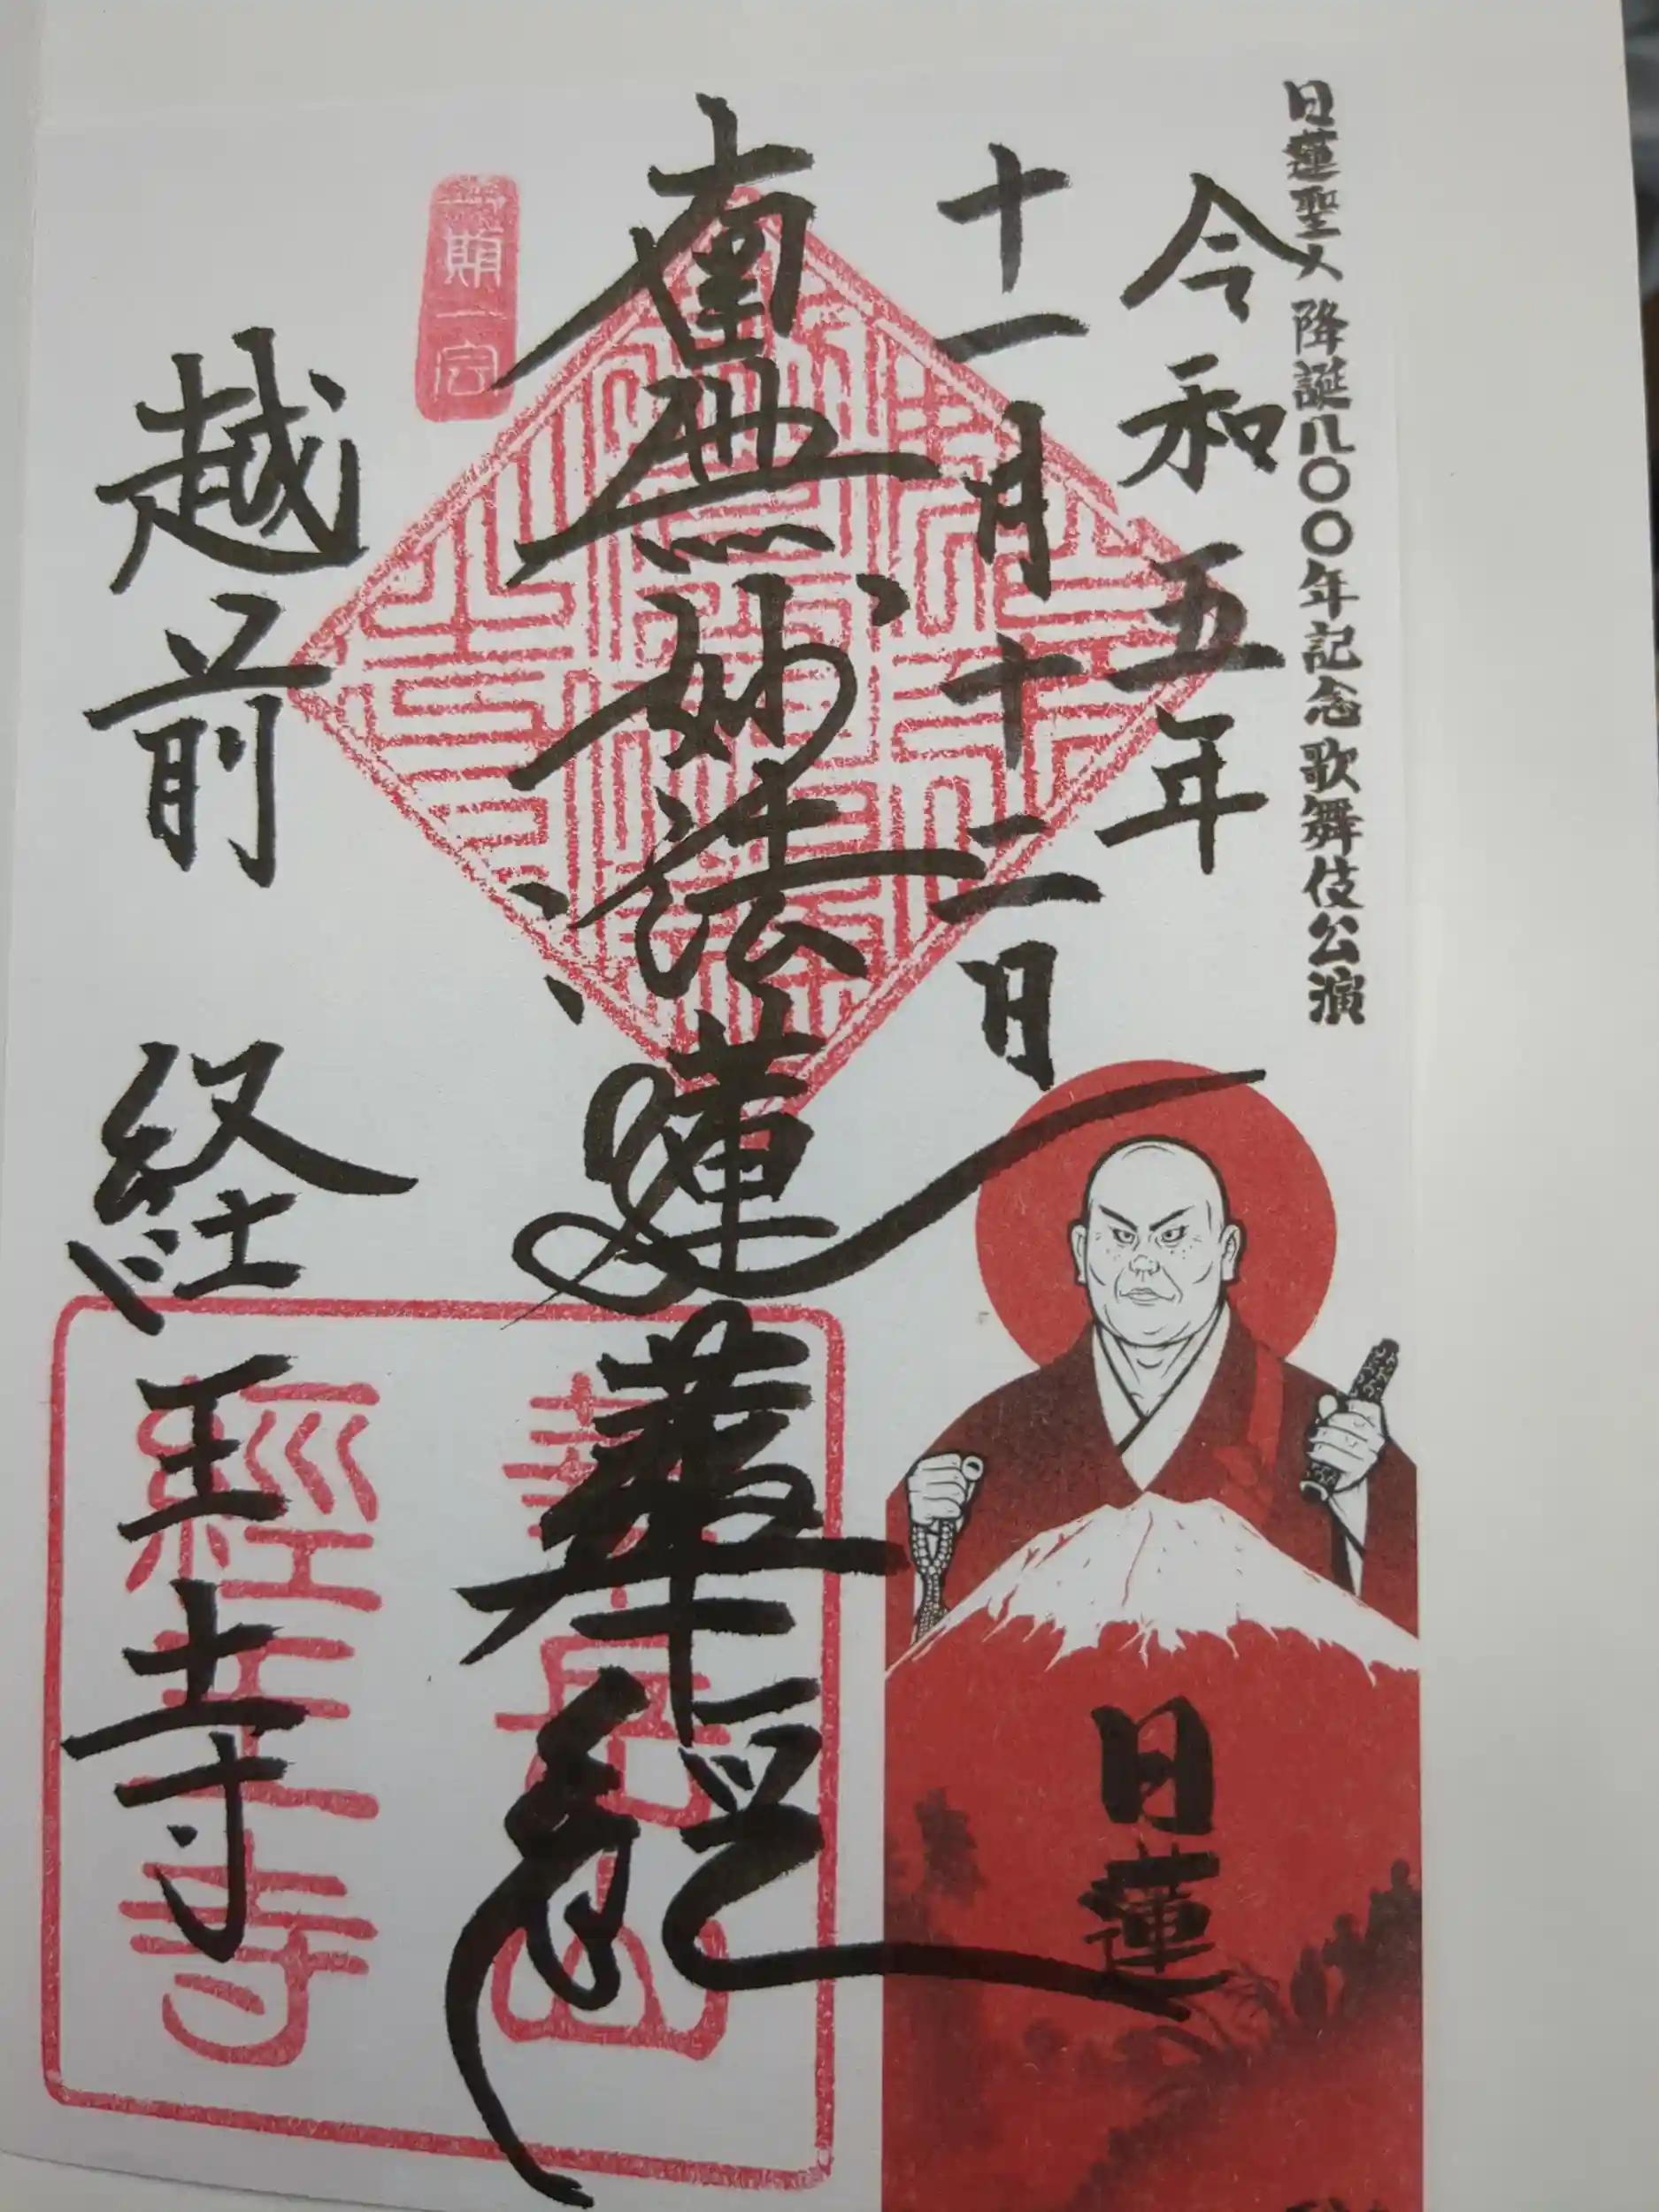 日蓮聖人降誕八〇〇年記念歌舞伎公演
令和五年
十一月十二日
南無妙法蓮華経
一期一会
越前 経王寺
日蓮
經王寺